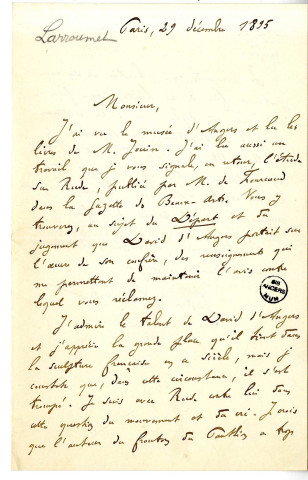 Larroumet
Paris, 29 décembre 1895
Monsieur,
J'ai vu le musée d'Angers et lu les
livres de M. Jouin. J'ai lu aussi un
travail que je vous signale, en retour, l'étude
sur Rude, publiée par M. de Fourcaud
dans la Gazette des Beaux-Arts. Vous y
trouverez, au sujet du Départ et du
jugement que David d'Angers portait sur
l'œuvre de son confrère, des renseignements qui
me permettent de maintenir l'avis contre
lequel vous réclamez.
BIB
ANGERS
MUN
J'admire le talent de David d'Angers
et j'apprécie la grande place qu'il tient dans
la sculpture française en ce siècle, mais je
constate que, dans cette circonstance, il s'est
trompé. Je suis avec Rude contre lui dans
cette question du mouvement et du cri. Je crois
que l'auteur du fronton du Panthéon a trop